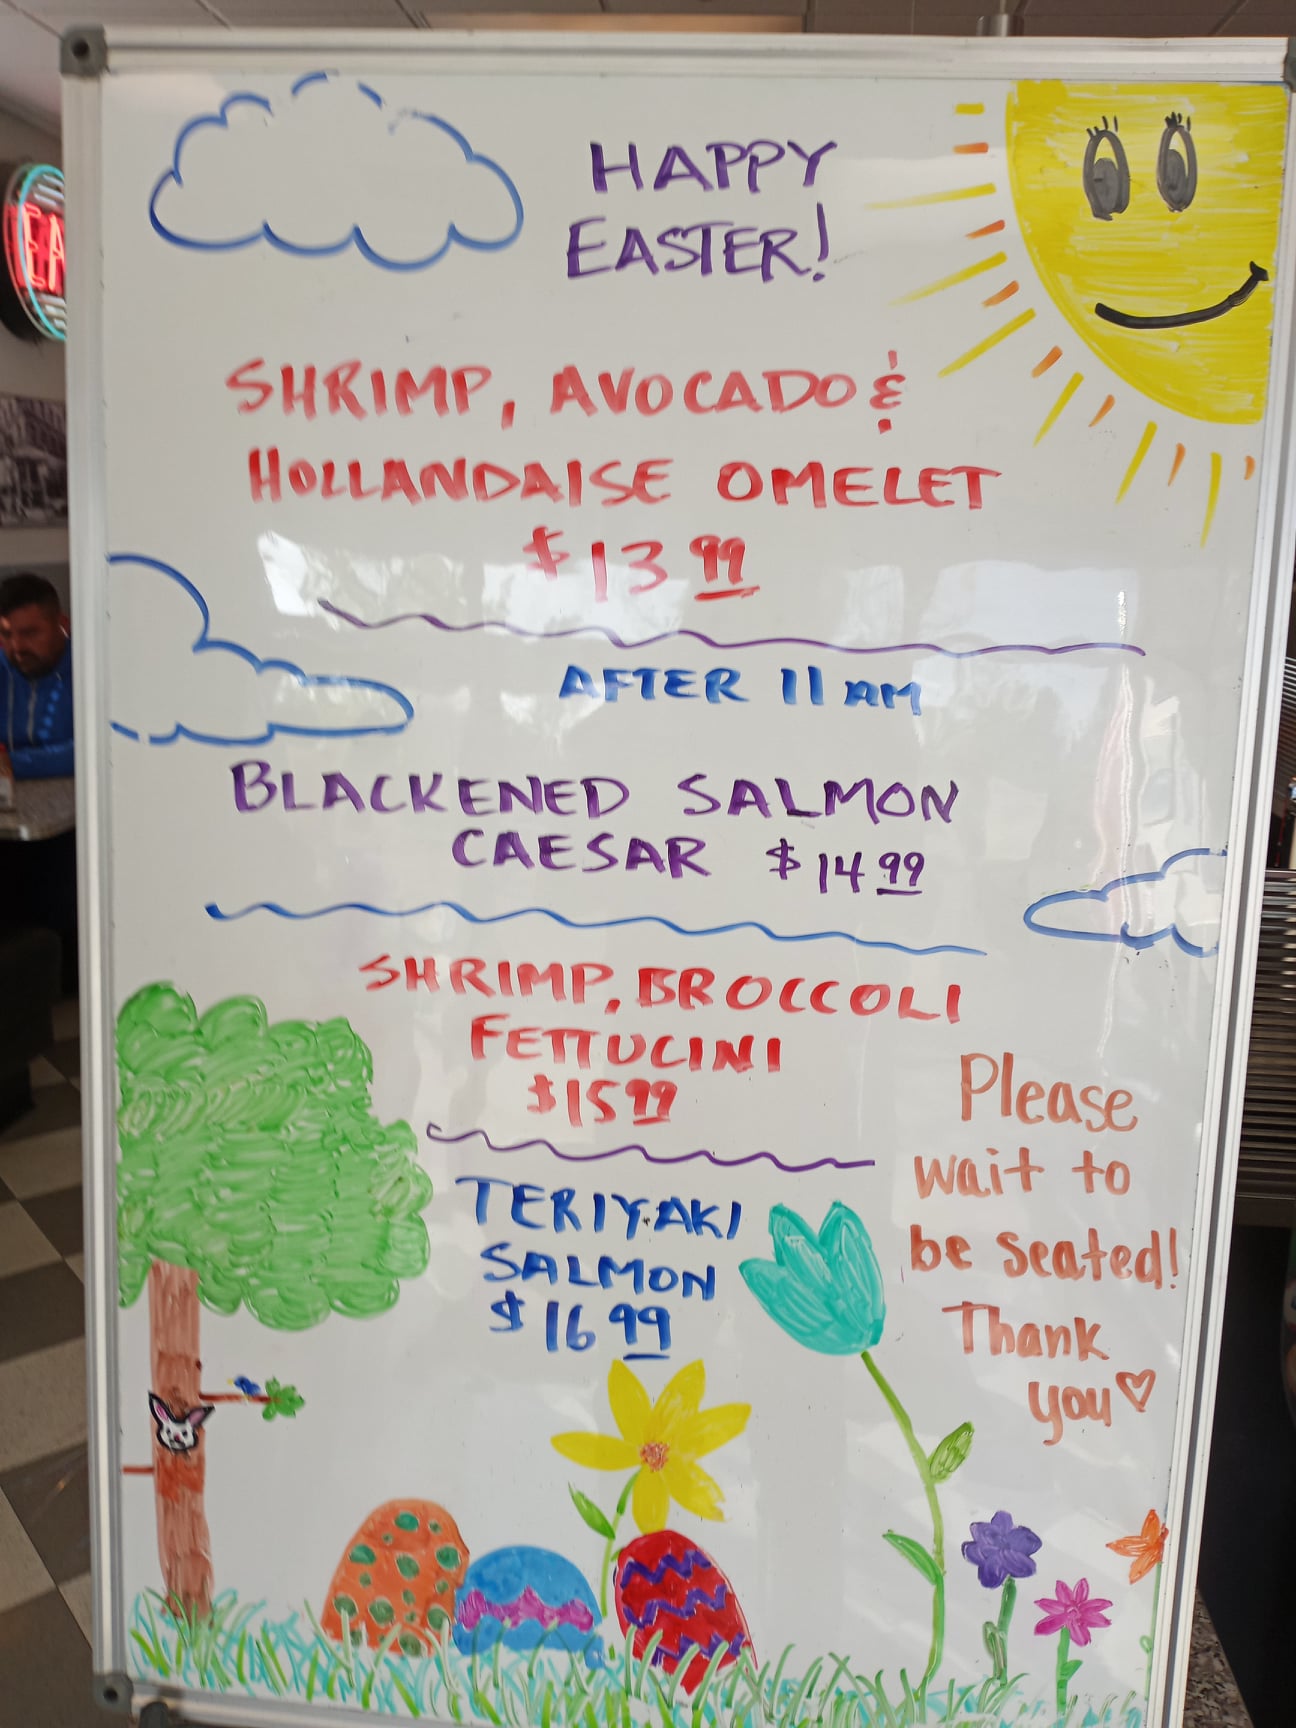 HAPPY
EASTER!
SHRIMP, AVOCADO &
HOLLANDAISE OMELET
$13 99
AFTER 11 AM
BLACKENED SALMON
CAESAR $14 99
SHRIMP, BROCCOLI
FETTUCINI
$15 99
TERIYAKI
SALMON
$16 99
Please
wait to
be seated!
Thank
you♡